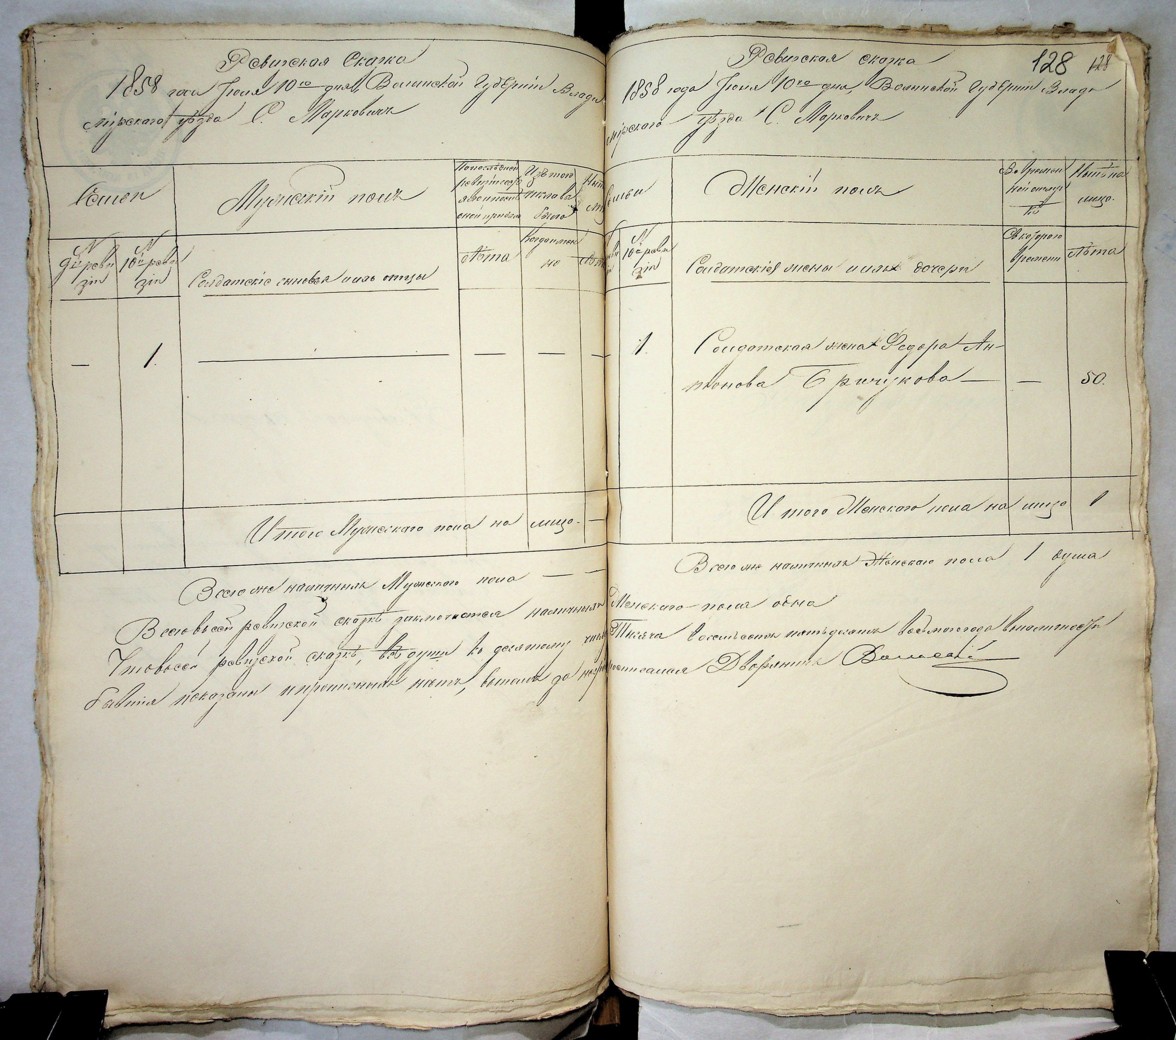 Ревизская Сказка
1858 года Июня 10го дня Волынской Губернiи Влади
мiрскаго уѣзда С. Марковичъ
Семьи
Мужескiй полъ
Изъ того
числа вы
было
N
9й реви
зiи
N
10й реви
зiи
Солдатскiе сыновья или отцы
Лѣта
Когда имен
но
Лѣта
—
1.
—
—
—
—
Итого Мужескаго пола на лицо. —
Всего же наличныхъ Мужескаго пола — —
Ревизская сказка
128
128
1858 года Июня 10го дня Волынской Губернiи Влади
мiрскаго уѣзда С. Марковичъ
Семьи
Женскiй полъ
Во времен
ной отлуч
кѣ
Нынѣ на
лицо.
N
10й реви
зiи
Солдатскiя жены и ихъ дочери
Съ котораго
времени
Лѣта
1.
Солдатская жена Федора Ан-
тонова Бричукова — — 50.
Итого Женскаго пола на лицо 1
Всего же наличныхъ Женскаго пола 1 душа
Всего въ сей ревизской сказкѣ заключается наличныхъ Женскаго пола одна
Что въ сей ревизской сказкѣ, всѣ души по десятому числу Тысяча восемьсотъ пятьдесятъ восьмого года
показаны и прописныхъ нѣтъ, Дворянинъ